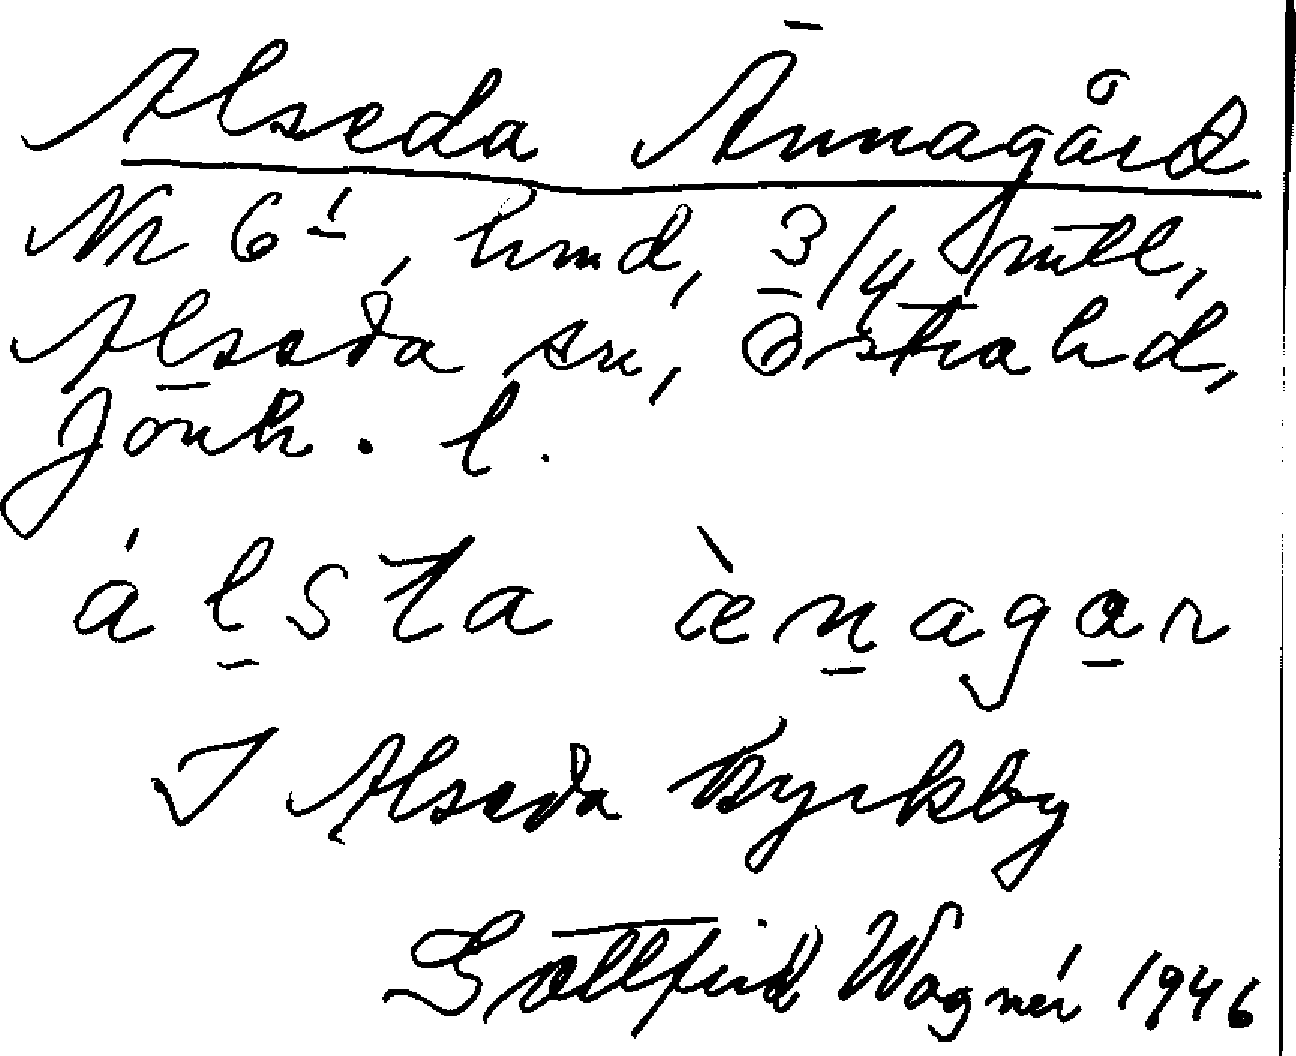 Alseda Ännagård
Nr 6¹, hmd, 3/4 mtl,
Alseda sn, Östra hd,
Jönk. l.
álsta ænagar
I Alseda kyrkby
Gottfrid Wagnér 1946